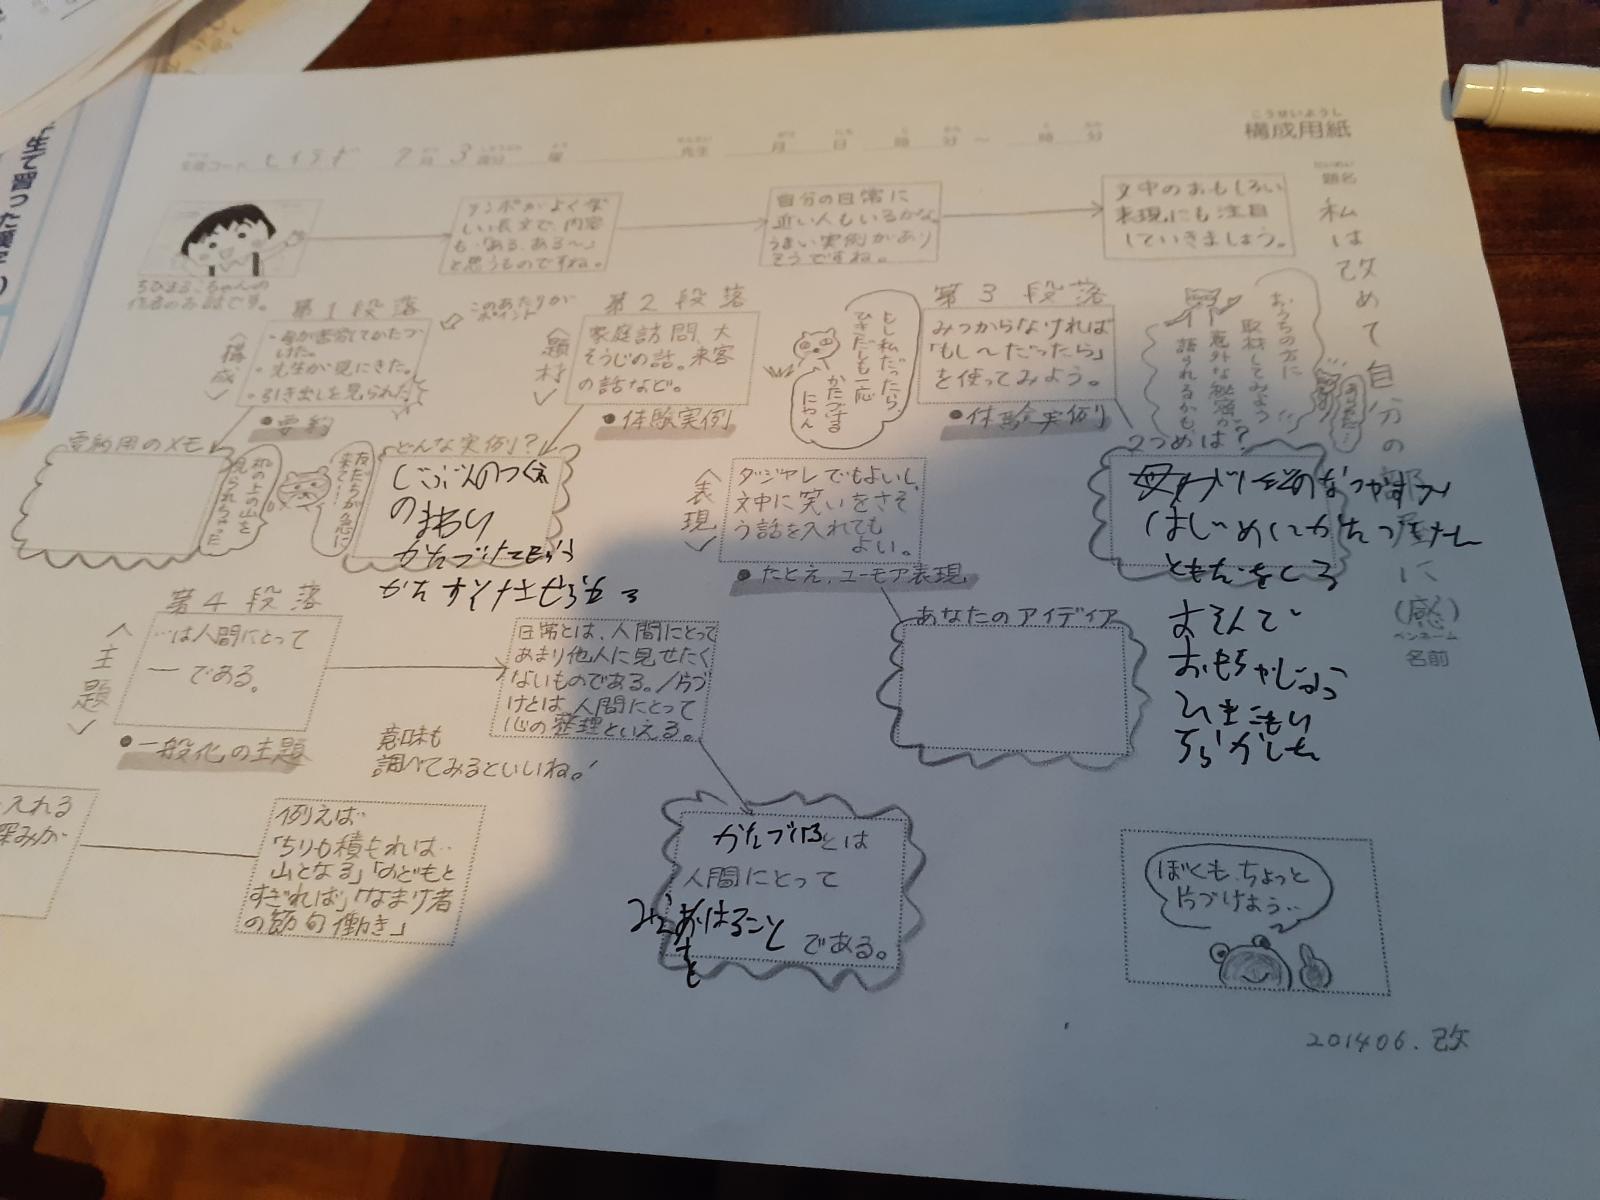 こうせいようし
構成用紙
ヒイラギ 7月 3週分 曜 先生 月 日 時 分 〜 時 分
題名
私は改めて自分の部屋に(感)
ペンネーム
名前
ちびまる子ちゃんの
作者のお話です。
テンポがよく楽
しい長文で、内容
も「ある、ある〜」
と思うものですね。
自分の日常に
近い人もいるかな。
うまい実例があり
そうですね。
文中のおもしろい
表現にも注目
していきましょう。
第1段落
このあたりが
ポイント
〈構成〉
・母が苦労してかたづ
けた。
・先生が見にきた。
・引き出しを見られた。
●要約
要約用のメモ
机の上の山を
見られちゃった
第2段落
〈題材〉
家庭訪問、大
そうじの話。来客
の話など。
●体験実例
どんな実例?
じぶんのつくえ
のまわり
かたづけてもらう
友だちが急に
来て…
第3段落
もし私だったら
ひきだしも一応
かたづける
にゃん
みつからなければ
「もし〜だったら」
を使ってみよう。
●体験実例
おうちの方に
取材してみよう
意外な秘密が
語られるかも。
2つめは?
はじめに
おもちゃ
〈表現〉
ダジャレでもよいし、
文中に笑いをさそ
う話を入れても
よい。
●たとえ、ユーモア表現
あなたのアイディア
第4段落
〈主題〉
…は人間にとって
― である。
●一般化の主題
日常とは、人間にとって
あまり他人に見せたく
ないものである。/片づ
けとは、人間にとって
心の整理といえる。
意味も
調べてみるといいね!
入れる
深みが
例えば
「ちりも積もれば…
山となる」「のどもと
すぎれば」「なまけ者
の節句働き」
とは
人間にとって
である。
ぼくも、ちょっと
片づけよう‥
201406.改
生で習った漢字